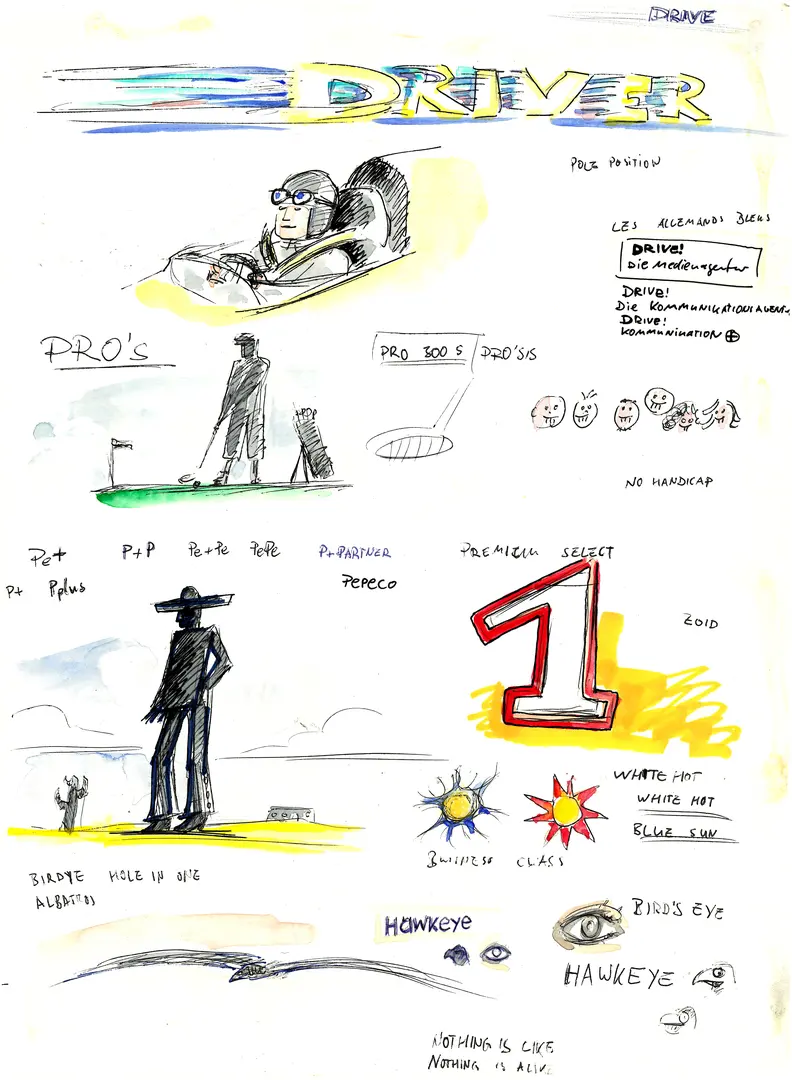 DRIVE
DRIVER
POLE POSITION
LES ALLEMANDS BLEUS
DRIVE!
Die Medienagentur
DRIVE!
Die KOMMUNIKATIONSAGENTUR
DRIVE!
KOMMUNIKATION
PRO'S
PRO 300 S
PRO'SIS
NO HANDICAP
Pe+
P+P
Pe+Pe
PePe
P+PARTNER
P+
Pplus
PEPECO
PREMIUM SELECT
1
ZOID
WHITE HOT
WHITE HOT
BLUE SUN
BUSINESS CLASS
BIRDYE HOLE IN ONE
ALBATROS
HAWKEYE
BIRD'S EYE
HAWKEYE
NOTHING IS LIKE
NOTHING IS ALIVE